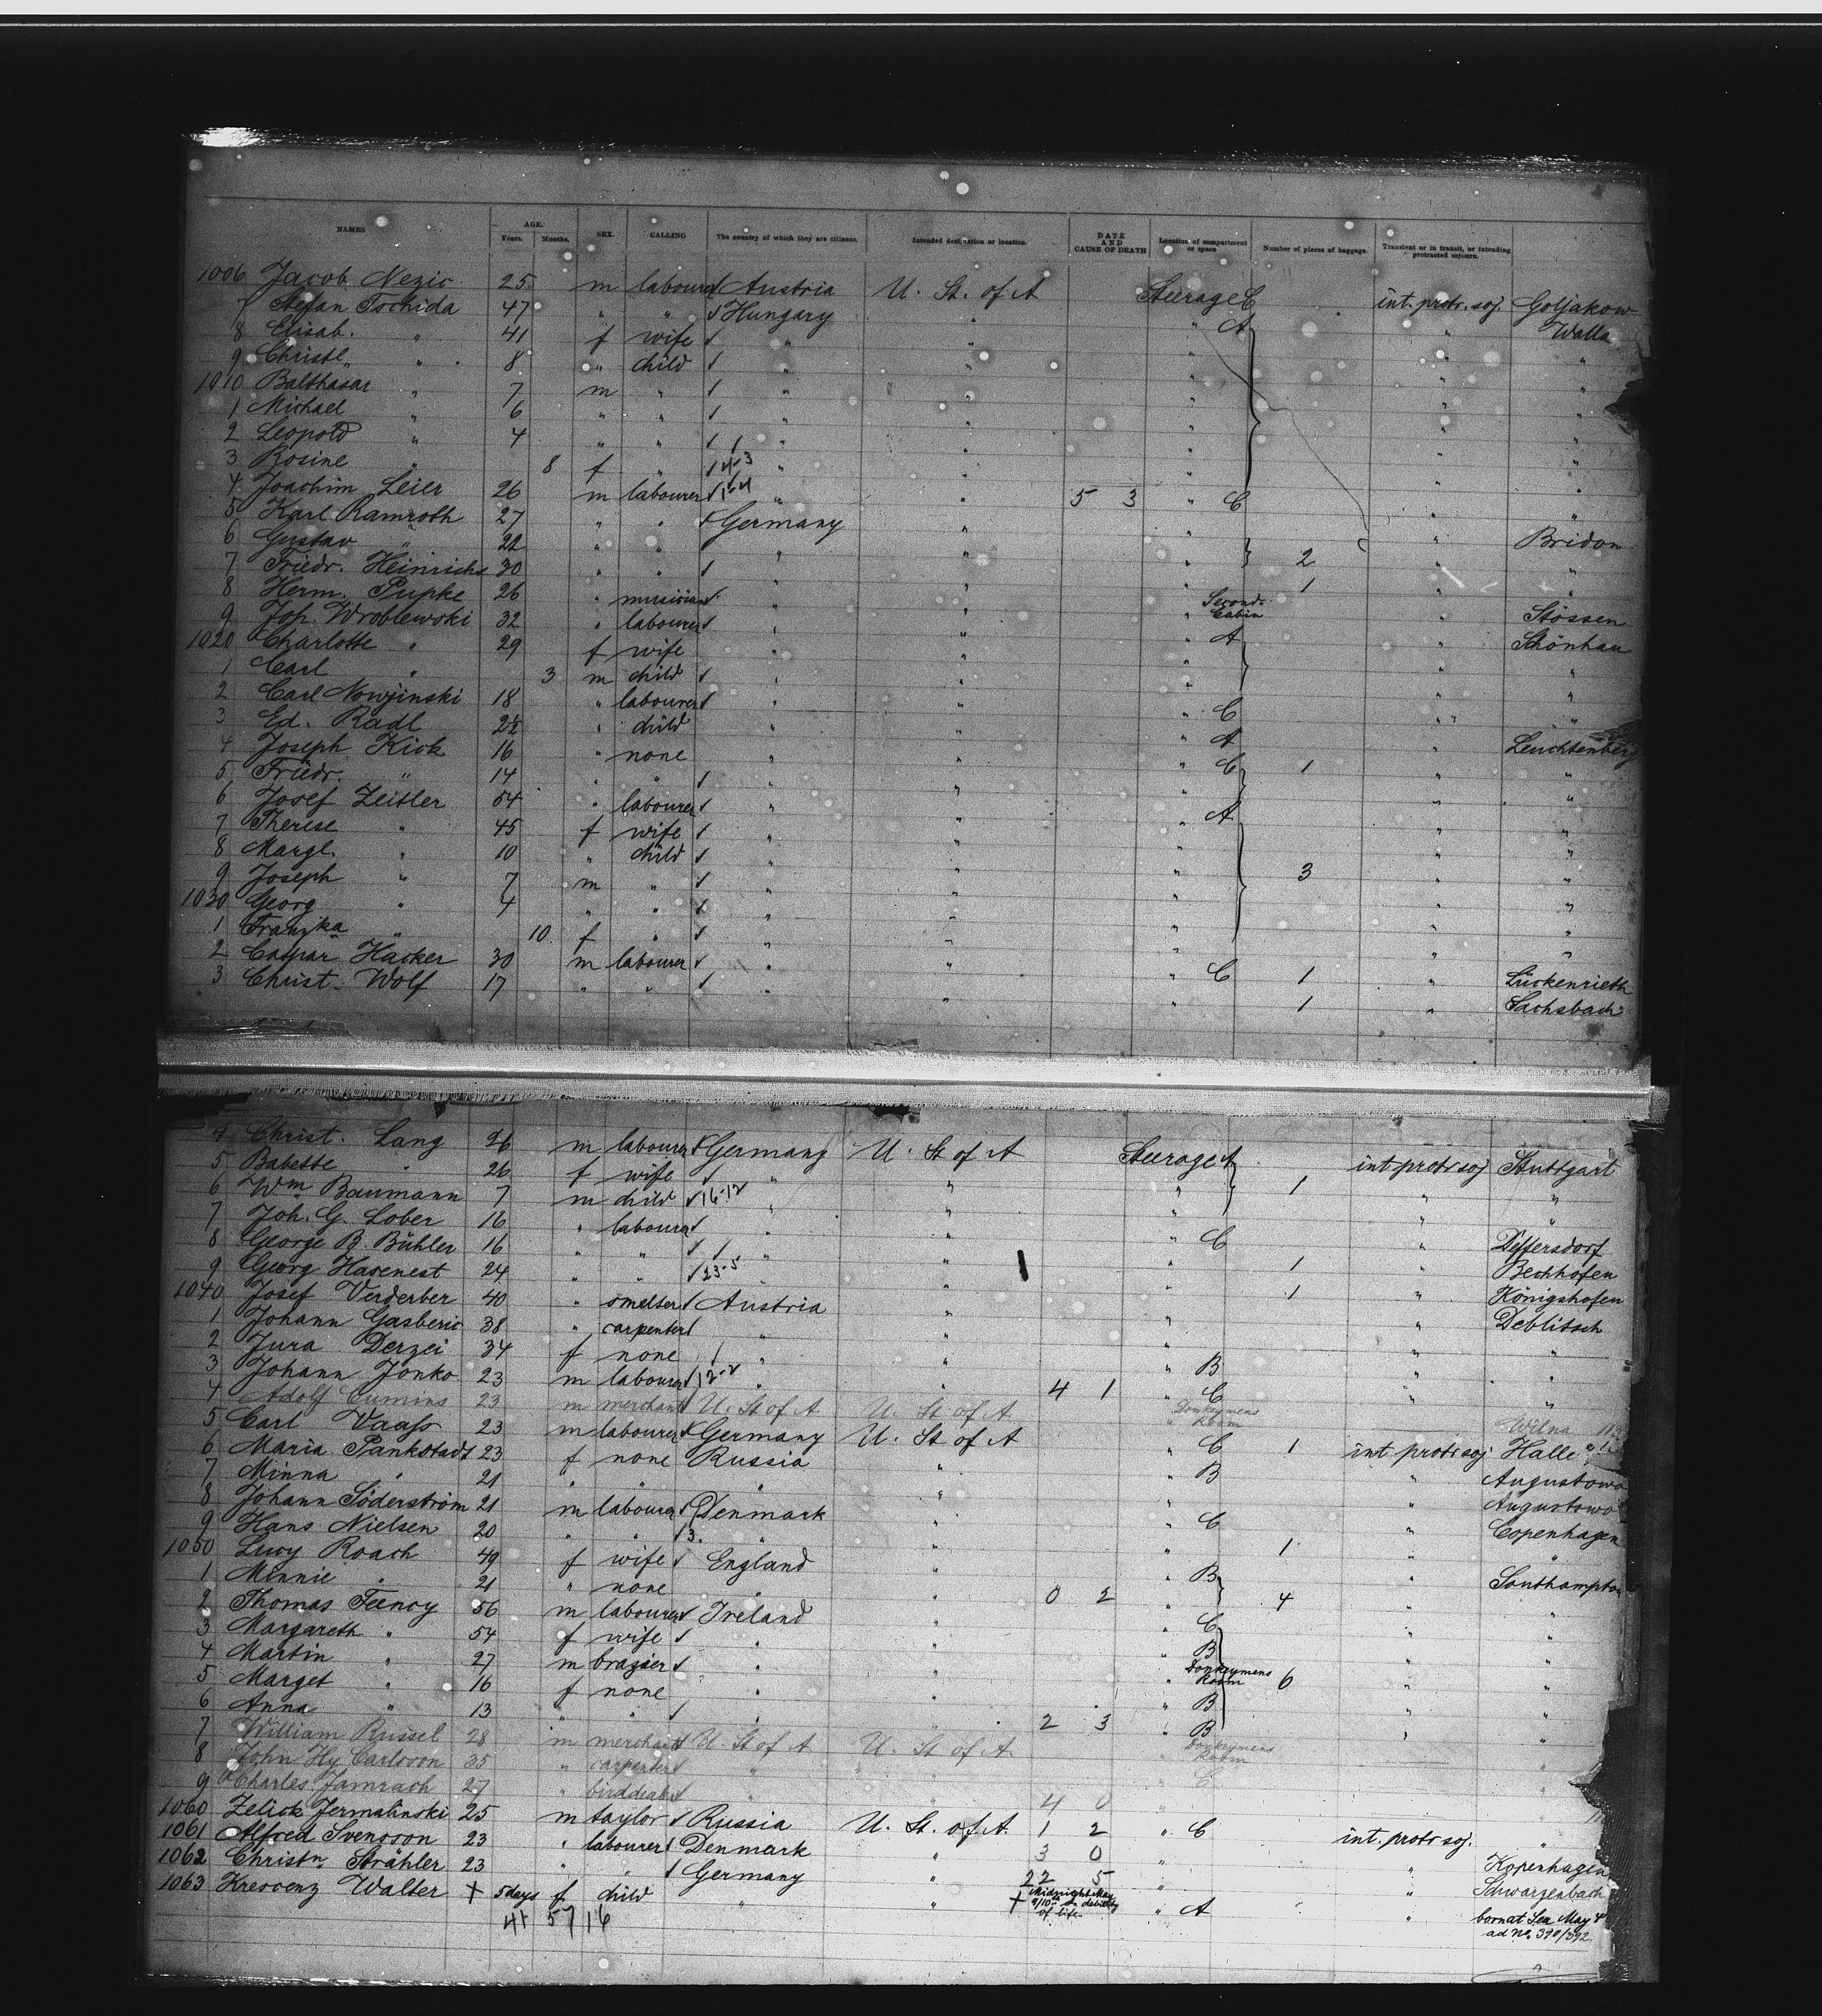 NAMES AGE. Years. Months. SEX. CALLING The country of which they are citizens. Intended destination or location. DATE AND CAUSE OF DEATH Location of compartment or space Number of pieces of baggage. Transient or in transit, or intending protracted sojourn.
1006 Jacob Nezic 25 m labourer Austria U. St. of A Steerage C int. protr. soj. Goljakow
7 Stefan Tschida 47 " " Hungary " " A " Walla
8 Elisab. " 41 f wife " " " " "
9 Christl. " 8 " child " " " " "
1010 Balthasar " 7 m " " " " " "
1 Michael " 6 " " " " " " "
2 Leopold " 4 " " " " " " "
3 Rosine " 8 f " 4-3 " " " " "
4 Joachim Leier 26 m labourer 1-4 " " 5 3 " C " "
5 Karl Ramroth 27 " " Germany " " " Bridon
6 Gustav " 22 " " " " " 2 " "
7 Friedr. Heinrichs 30 " " " " " 1 " "
8 Herm. Pupke 26 " musician " " Second Cabin " Stössen
9 Joh. Wroblewski 32 " labourer " " " A " Schönhau
1020 Charlotte " 29 f wife " " " " "
1 Carl " 3 m child " " " " "
2 Carl Nowjinski 18 " labourer " " " C " "
3 Ed. Radl 2½ " child " " " A " Leuchtenberg
4 Joseph Kick 16 " none " " " C 1 " "
5 Friedr. " 14 " " " " " " "
6 Josef Zeitler 54 " labourer " " " A " "
7 Therese " 45 f wife " " " " "
8 Margl. " 10 " child " " " " "
9 Joseph " 7 m " " " " 3 " "
1030 Georg " 4 " " " " " " "
1 Franzka " 10 f " " " " " "
2 Caspar Hacker 30 m labourer " " " C 1 " Lückenrieth
3 Christ. Wolf 17 " " " " " 1 " Sachsbach
4 Christ. Lang 26 m labourer Germany U. St of A Steerage A int protr soj Stuttgart
5 Babette " 26 f wife " " " 1 " "
6 Wm Baumann 7 m child 16-12 " " " " "
7 Joh. G. Lober 16 " labourer " " " C " Deffersdorf
8 George B. Bühler 16 " " " " " 1 " Bechhofen
9 Georg Hasenest 24 " " 23-5 " " " 1 " Königshofen
1040 Josef Verderber 40 " smelter Austria " " " Deblitsch
1 Johann Gasberic 38 " carpenter " " " " "
2 Jura Derzei 34 f none " " " B " "
3 Johann Jonko 23 m labourer 12-2 " " 4 1 " C " "
4 Adolf Cumins 23 m merchant U. St of A U. St of A Donkeymens Room Wilna
5 Carl Vaass 23 m labourer Germany U. St of A " C 1 int protr soj Halle
6 Maria Pankstadt 23 f none Russia " " B " Augustowo
7 Minna " 21 " " " " " " Augustowo
8 Johann Söderström 21 m labourer Denmark " " C " Copenhagen
9 Hans Nielsen 20 " " 3. " " " 1 " "
1050 Lucy Roach 49 f wife England " " B " Southampton
1 Minnie " 21 " none " " 0 2 " 4 " "
2 Thomas Feenoy 56 m labourer Ireland " " C " "
3 Margareth " 54 f wife " " " B " "
4 Martin " 27 m brazier " " " Donkeymens Room 6 " "
5 Marget " 16 f none " " " B " "
6 Anna " 13 " " " " 2 3 " B " "
7 William Russel 28 m merchant U. St of A U. St of A Donkeymens Room "
8 John Hy Carlsson 35 " carpenter " " " C "
9 Charles Jamrach 27 " birddealer " " 4 0 " "
1060 Zelick Jermalinski 25 m taylor Russia U. St. of A. 1 2 " C int. protr soj. "
1061 Alfred Svensson 23 " labourer Denmark " 3 0 " " Kopenhagen
1062 Christn Strähler 23 " " Germany " 22 5 " " Schwarzenbach
1063 Krescenz Walter + 5 days f child " " + Midnight May 9/10th in debility of life " A " born at Sea May 4 ad No. 390/392
41 57 16